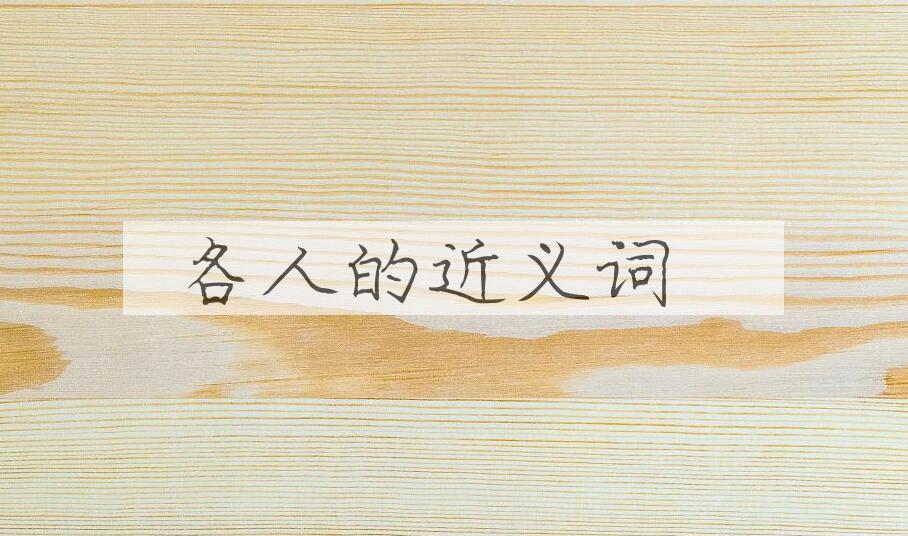 各人的近义词